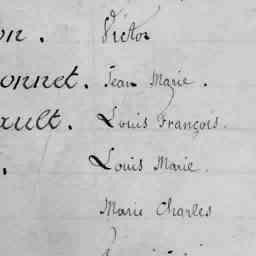 on. Victor
onnet. Jean Marie.
ault. Louis François.
. Louis Marie.
Marie Charles